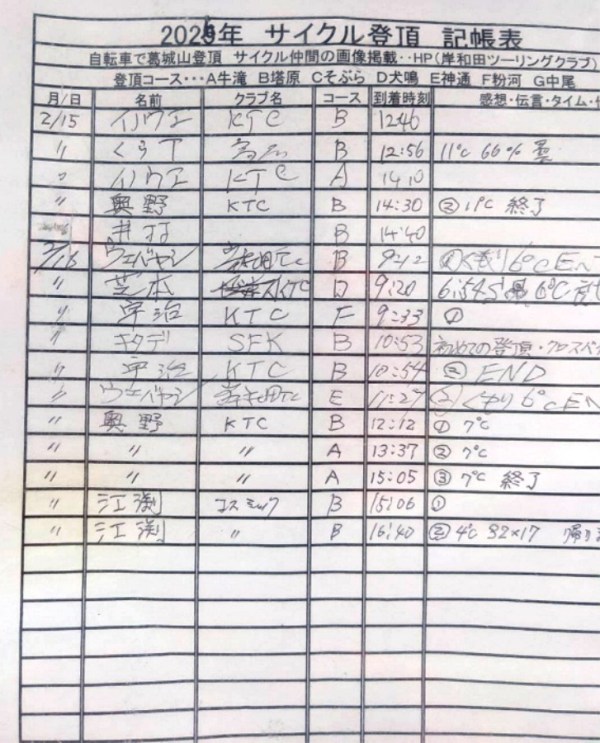 年 サイクル登頂 記帳表
自転車で葛城山登頂 サイクル仲間の画像掲載‥HP(岸和田ツーリングクラブ)
登頂コース‥‥A牛滝 B塔原 Cそぶら D犬鳴 E神通 F粉河 G中尾
月/日 名前 クラブ名 コース 到着時刻 感想・伝言・タイム・
2/15 イノウエ KTC B 12:46
〃 くらT B 12:56 11℃ 66%
〃 イノウエ KTC A 14:10
〃 奥野 KTC B 14:30 ② 11℃ 終了
井村 B 14:40
2/16 ウエバヤシ B 9:12 6℃
〃 芝本 KTC D 9:20 6:54 6℃
〃 宇治 KTC F 9:33 ①
〃 キタデ SFK B 10:53 初めての登頂・クロスバイク
〃 宇治 KTC B 10:54 ② END
〃 ウエバヤシ E 11:27 ② くもり 6℃
〃 奥野 KTC B 12:12 ① 7℃
〃 〃 〃 A 13:37 ② 7℃
〃 〃 〃 A 15:05 ③ 7℃ 終了
〃 江渕 コスミック B 15:06 ①
〃 江渕 〃 B 16:40 ② 4℃ 32×17 帰り